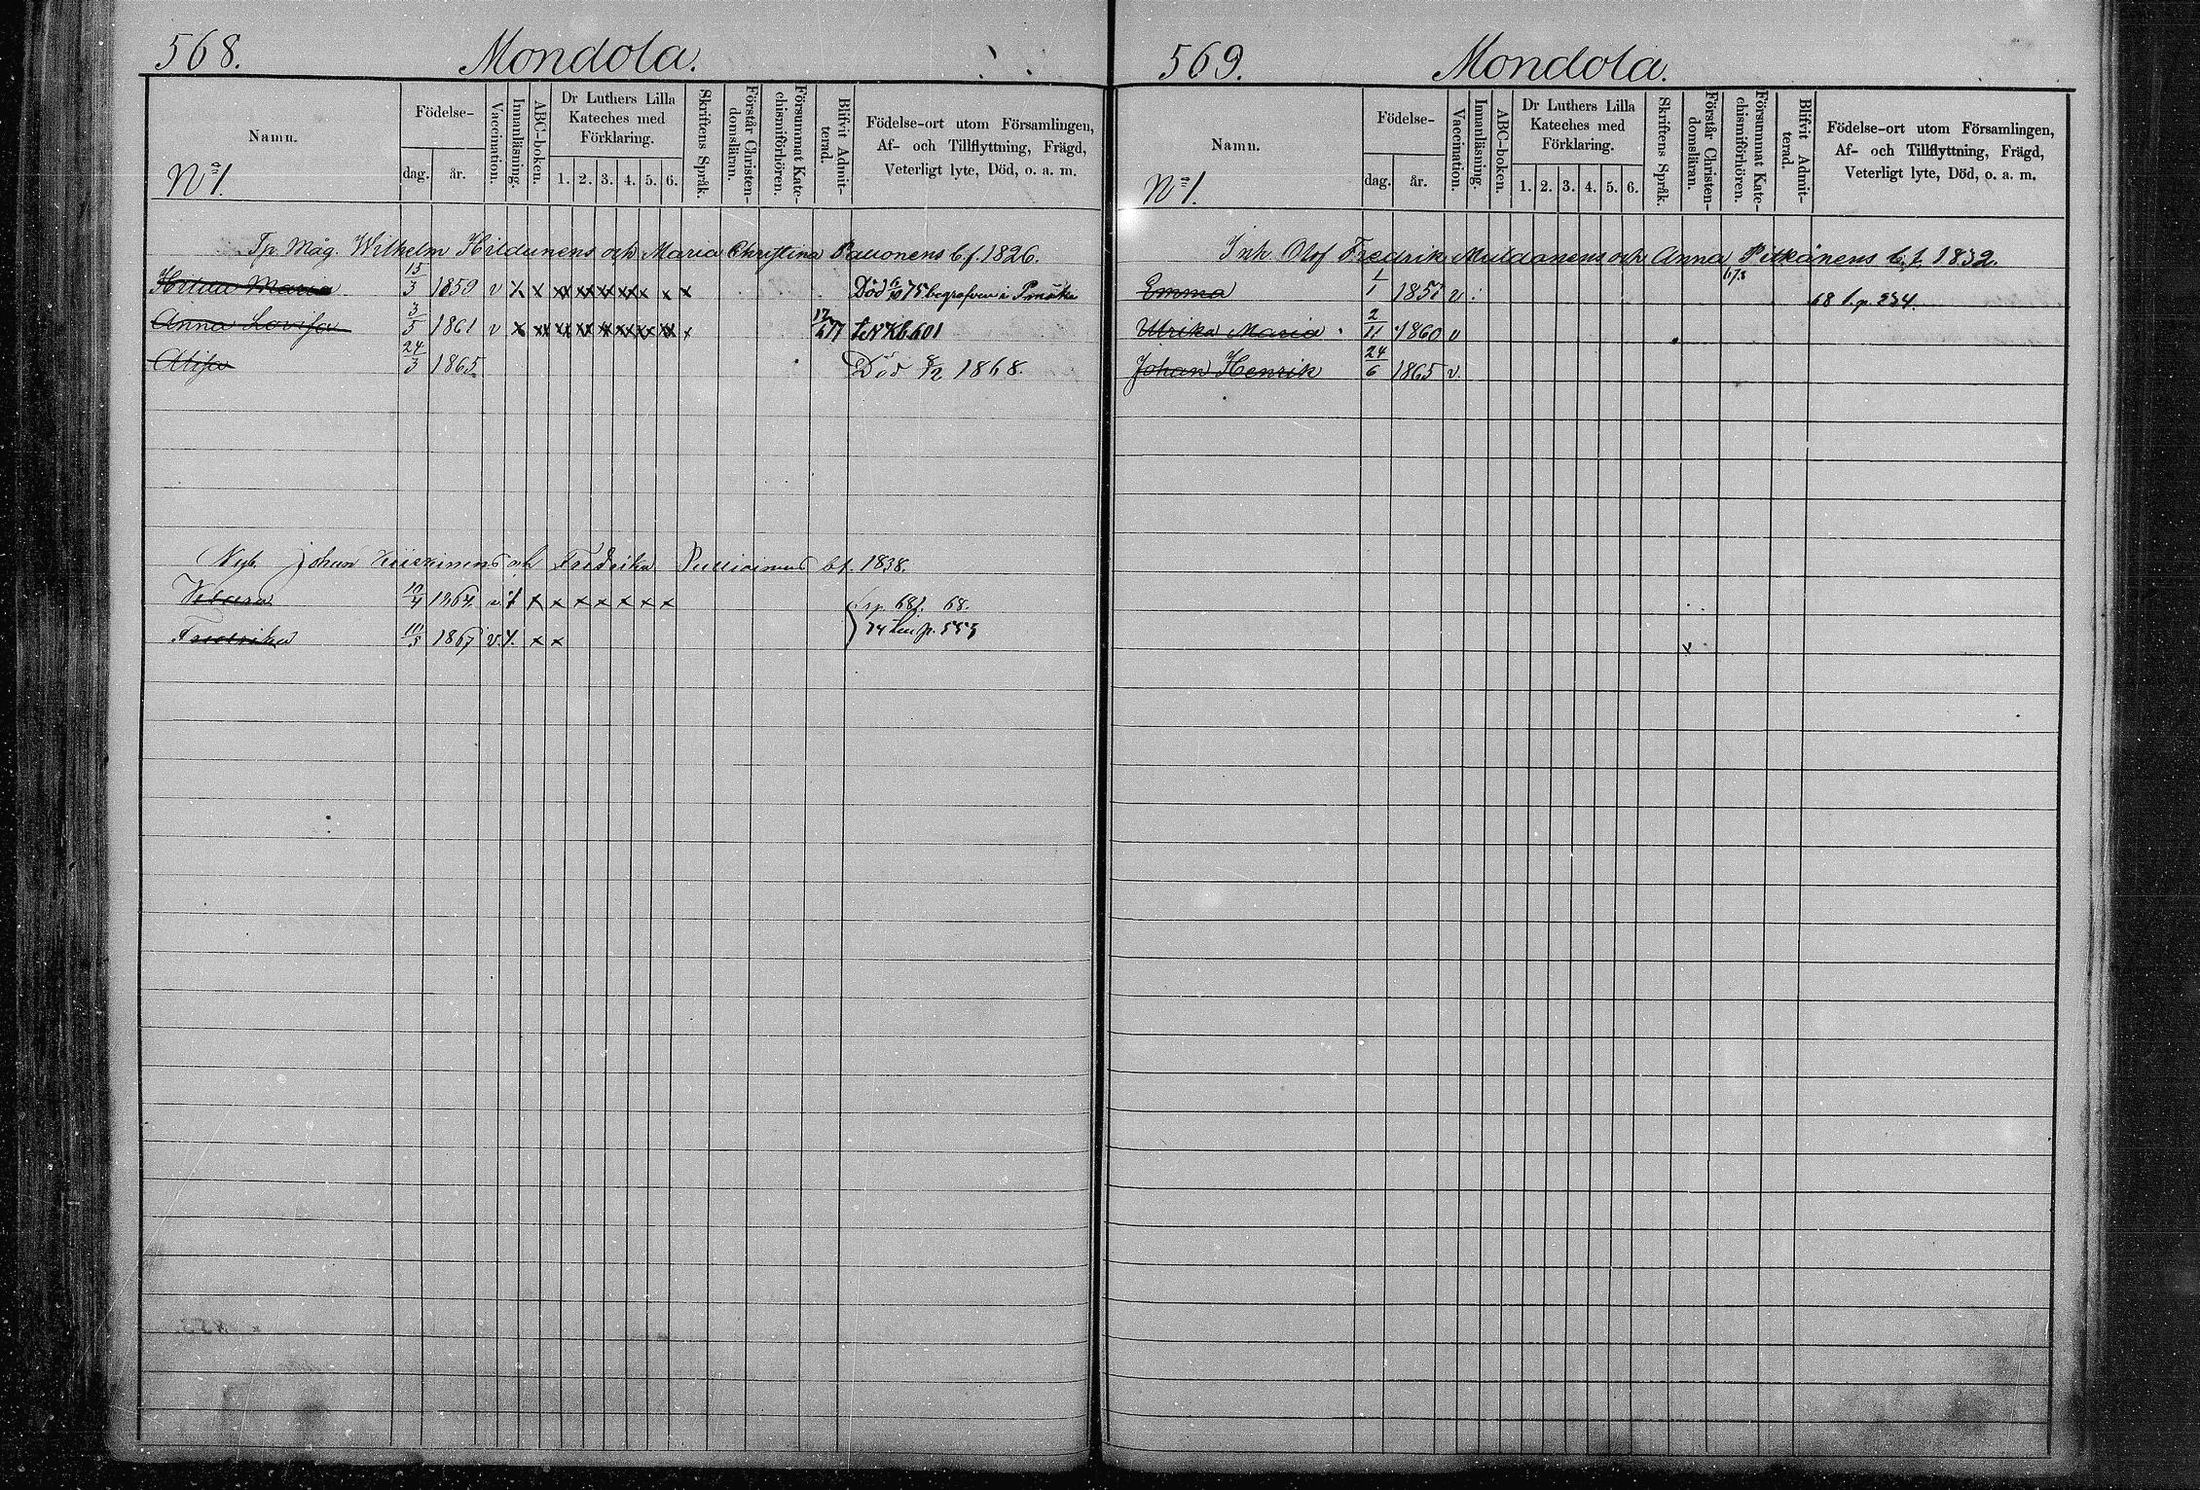 568. Mondola.
Namn.
Födelse-
dag.
år.
Vaccination.
Innanläsning.
ABC-boken.
Dr Luthers Lilla Kateches med Förklaring.
1. 2. 3. 4. 5. 6.
Skriftens Språk.
Förstår Christendomsläran.
Försummat Katechismiförhören.
Blifvit Admitterad.
Födelse-ort utom Församlingen,
Af- och Tillflyttning, Frägd,
Veterligt lyte, Död, o. a. m.
No 1.
Tp. Måg. Wilhelm och Maria Christina b.f. 1826.
Maria 15/3 1859 v x x xx xx xx xx x x x Död 75 begrafven i
Anna Lovisa 3/5 1861 v x xx xx xx xx xx xx xx x 77 601
24/3 1865 Död 8/2 1868.
Johan och Fredrika bf. 1838.
1864 v x x x x x x x 68.
Fredrika 1867 v. x x p. 553
569. Mondola.
Namn.
Födelse-
dag.
år.
Vaccination.
Innanläsning.
ABC-boken.
Dr Luthers Lilla Kateches med Förklaring.
1. 2. 3. 4. 5. 6.
Skriftens Språk.
Förstår Christendomsläran.
Försummat Katechismiförhören.
Blifvit Admitterad.
Födelse-ort utom Församlingen,
Af- och Tillflyttning, Frägd,
Veterligt lyte, Död, o. a. m.
No 1.
Inh. Olof Fredrik och Anna Pitkänens b.f. 1832.
Emma 1/1 1857 v 68 p. 234.
Ulrika Maria 2/11 1860 v
Johan Henrik 24/6 1865 v.